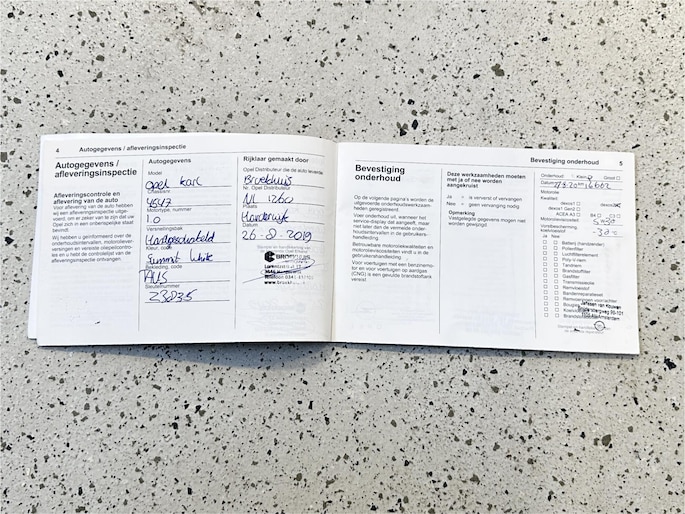 4 Autogegevens / afleveringsinspectie
Autogegevens /
afleveringsinspectie
Afleveringscontrole en
aflevering van de auto
Voor aflevering van de auto hebben
wij een afleveringsinspectie uitge-
voerd, om er zeker van te zijn dat uw
Opel zich in een onberispelijke staat
bevindt
Wij hebben u geïnformeerd over de
onderhoudsintervallen, motorolever-
versingen en vereiste oliepeilcontro-
les en u hebt de controlelijst van de
afleveringsinspectie ontvangen.
Autogegevens
Model
Opel Karl
4547
Motortype, nummer
1.0
Versnellingsbak
Handgeschakeld
Kleur, code
Summit White
Bekleding, code
Sleutelnummer
Z3835
Rijklaar gemaakt door
Opel Distributeur die de auto leverde
Broekhuis
Nr. Opel Distributeur
NL 1260
Plaats
Harderwijk
Datum
26-8-2019
BROEKHUIS
Bevestiging onderhoud 5
Bevestiging
onderhoud
Op de volgende pagina's worden de
uitgevoerde onderhoudswerkzaam-
heden geregistreerd.
Voer onderhoud uit, wanneer het
service-display dat aangeeft, maar
niet later dan de vermelde onder-
houdsintervallen in de gebruikers-
handleiding.
Betrouwbare motoroliekwaliteiten en
motorolieviscositeiten vindt u in de
gebruikershandleiding.
Voor voertuigen met een benzinemo-
tor en voor voertuigen op aardgas
(CNG) is een gevulde brandstoftank
vereist.
Deze werkzaamheden moeten
met ja of nee worden
aangekruist
Ja = is ververst of vervangen
Nee = geen vervanging nodig
Opmerking
Vastgelegde gegevens mogen niet
worden gewijzigd
Onderhoud Klein Groot
Datum
Motorolie
Kwaliteit
dexos1 dexos2
dexos1 Gen2
ACEA A3 B4 C3
Motorolieviscositeit
Vorstbescherming
koelvloeistof
-38°
Ja Nee
Batterij (handzender)
Pollenfilter
Luchtfilterelement
Poly-V-riem
Tandriem
Brandstoffilter
Gasfilter
Transmissieolie
Remvloeistof
Bandenreparatieset
Remvoeringen voor/achter
Bougies
Janssen van Kouwen